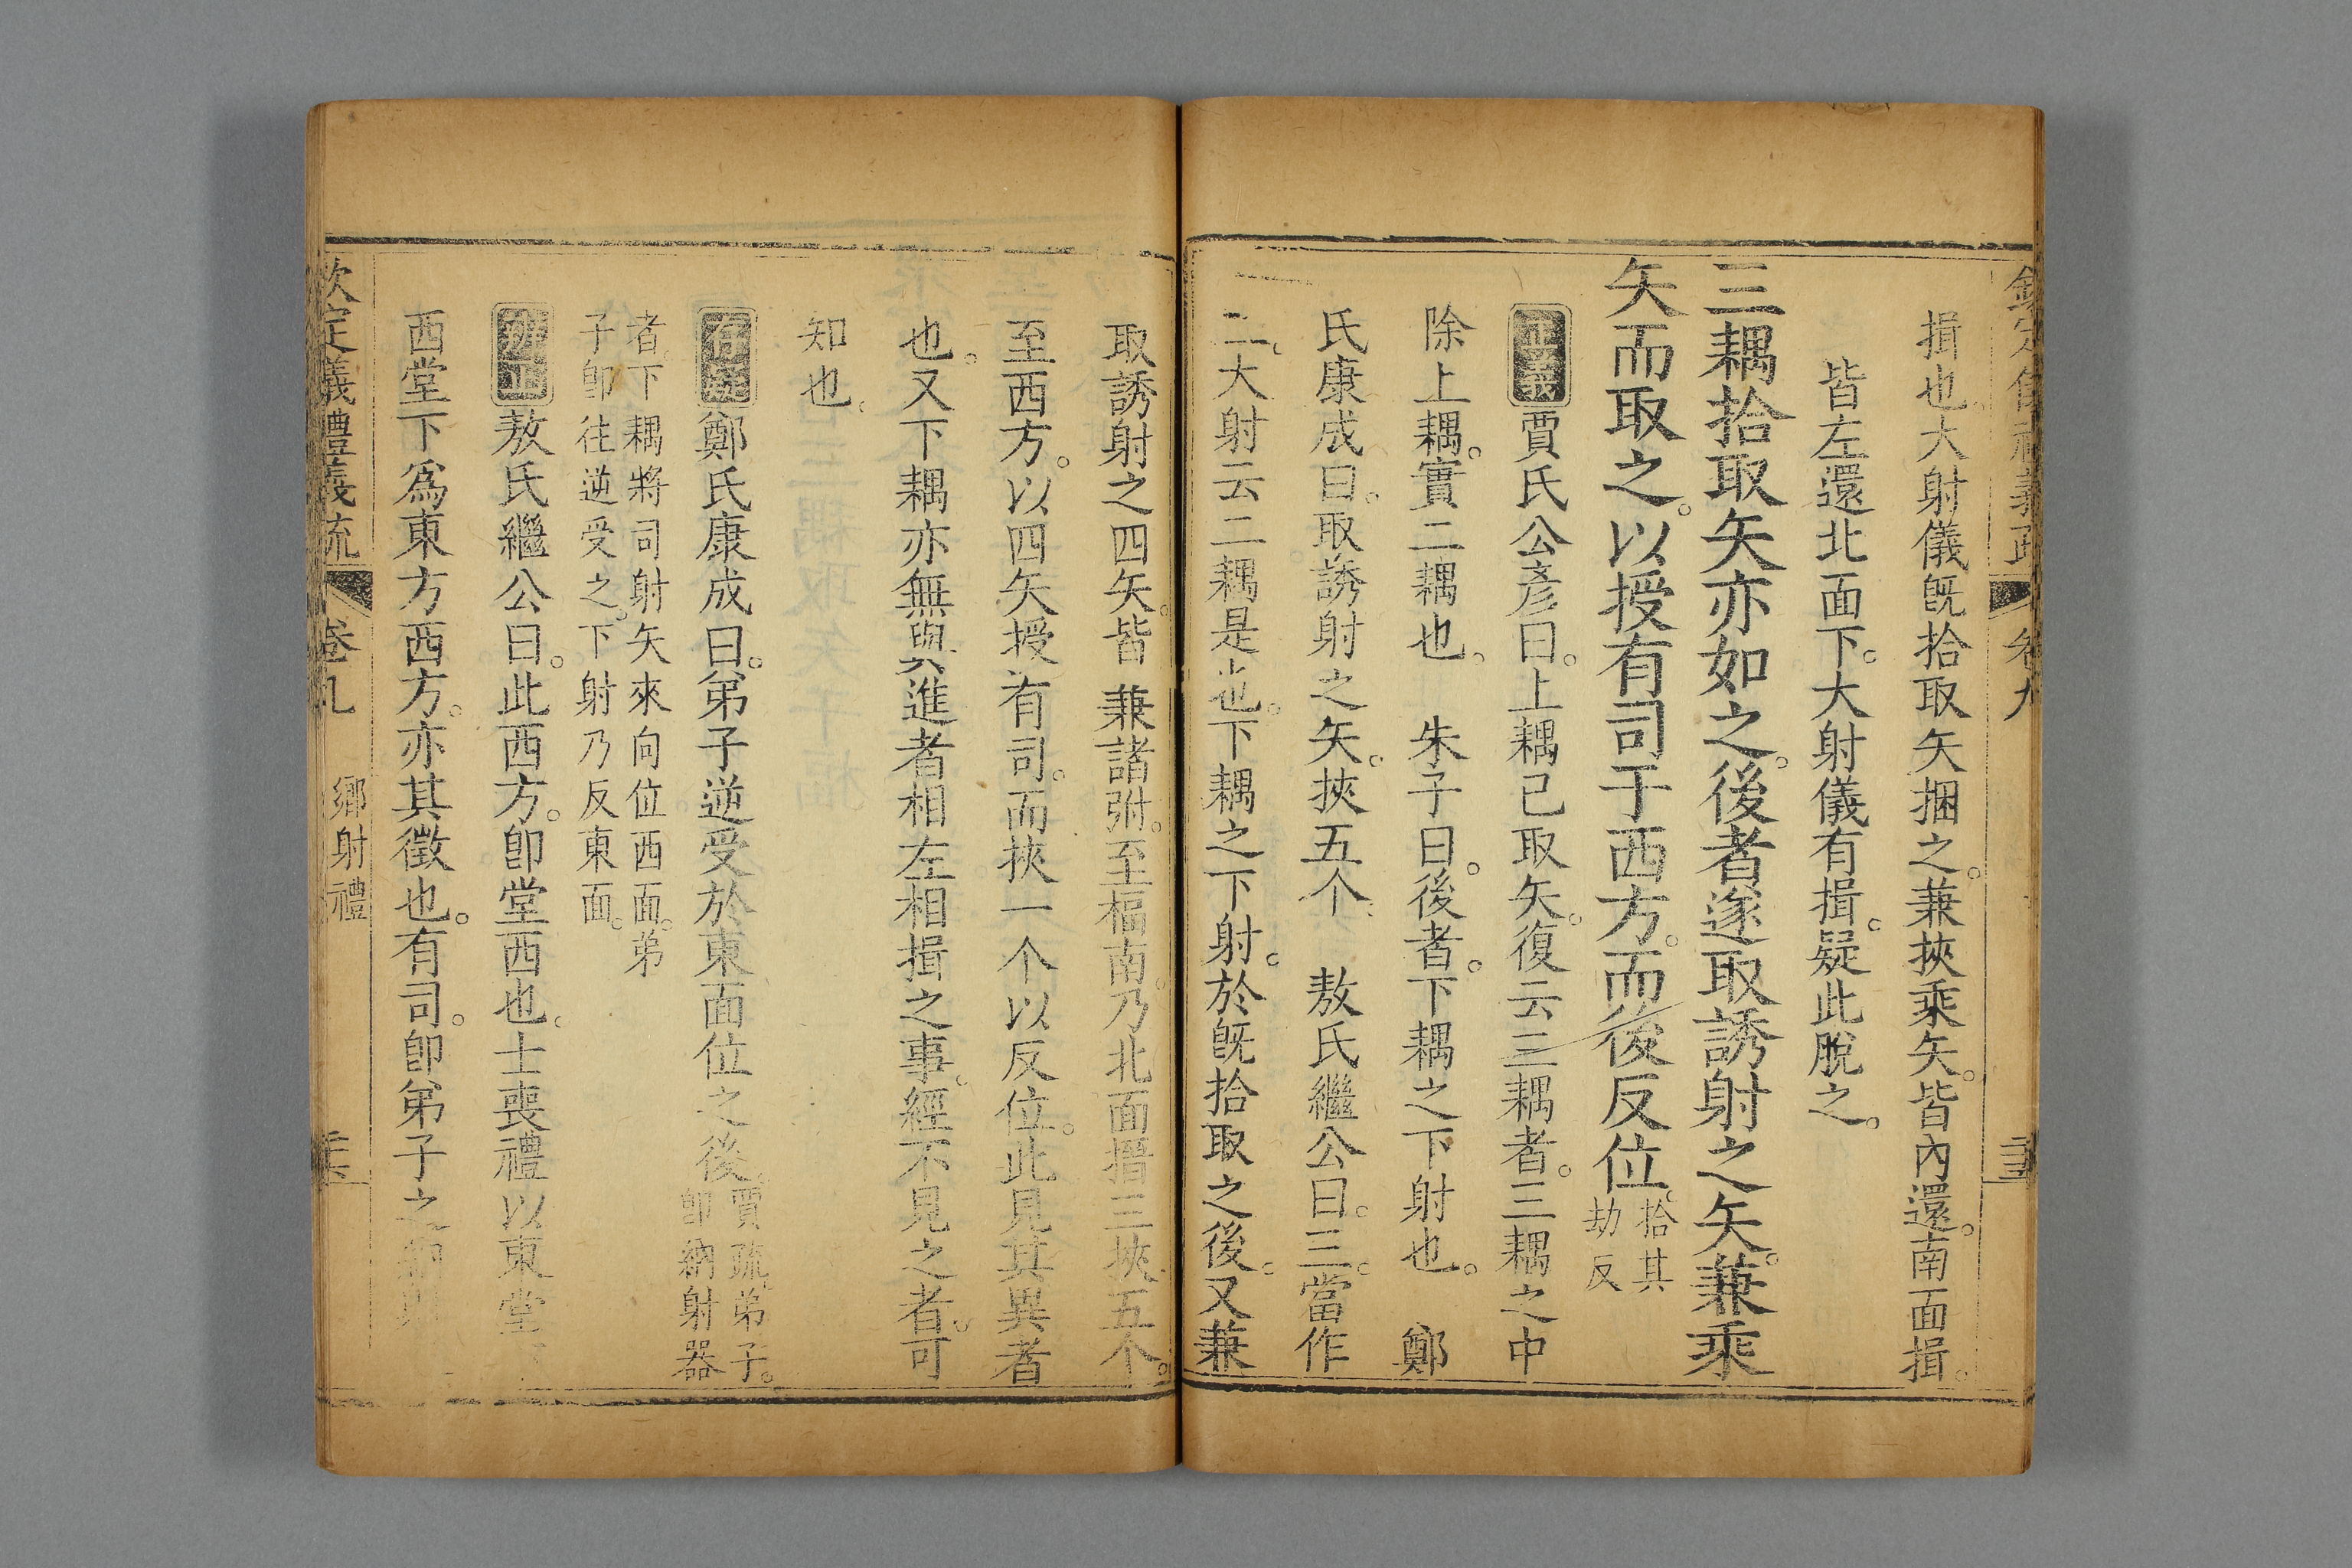 揖也。大射儀旣拾取矢捆之。兼挾乘矢。皆內還。南面揖。
皆左還北面下。大射儀有揖。疑此脫之。
三耦拾取矢亦如之。後者遂取誘射之矢。兼乘
矢而取之。以授有司于西方。而後反位。拾其
劫反
正義賈氏公彥曰。上耦已取矢。復云三耦者。三耦之中
除上耦。實二耦也。 朱子曰。後者。下耦之下射也。 鄭
氏康成曰。取誘射之矢。挾五个。 敖氏繼公曰。三。當作
二。大射云二耦是也。下耦之下射。於旣拾取之後。又兼
取誘射之四矢。皆兼諸弣。至楅南。乃北面搢三挾五个。
至西方。以四矢授有司。而挾一个以反位。此見其異者
也。又下耦亦無與進者相左相揖之事。經不見之者。可
知也。
存疑鄭氏康成曰。弟子逆受於東面位之後。賈疏。弟子。
卽納射器
者。下耦將司射矢來向位西面。弟
子卽往逆受之。下射乃反東面。
辨正敖氏繼公曰。此西方。卽堂西也。士喪禮以東堂
西堂下爲東方西方。亦其徵也。有司。卽弟子之納
欽定儀禮義疏 卷九 鄉射禮